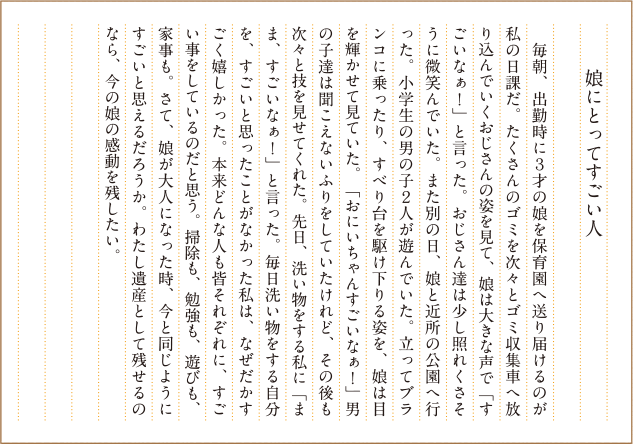 娘にとってすごい人
毎朝、出勤時に３才の娘を保育園へ送り届けるのが
私の日課だ。たくさんのゴミを次々とゴミ収集車へ放
り込んでいくおじさんの姿を見て、娘は大きな声で「す
ごいなぁ！」と言った。おじさん達は少し照れくさそ
うに微笑んでいた。また別の日、娘と近所の公園へ行
った。小学生の男の子２人が遊んでいた。立ってブラ
ンコに乗ったり、すべり台を駆け下りる姿を、娘は目
を輝かせて見ていた。「おにいちゃんすごいなぁ！」男
の子達は聞こえないふりをしていたけれど、その後も
次々と技を見せてくれた。先日、洗い物をする私に「ま
ま、すごいなぁ！」と言った。毎日洗い物をする自分
を、すごいと思ったことがなかった私は、なぜだかす
ごく嬉しかった。本来どんな人も皆それぞれに、すご
い事をしているのだと思う。掃除も、勉強も、遊びも、
家事も。さて、娘が大人になった時、今と同じように
すごいと思えるだろうか。わたし遺産として残せるの
なら、今の娘の感動を残したい。